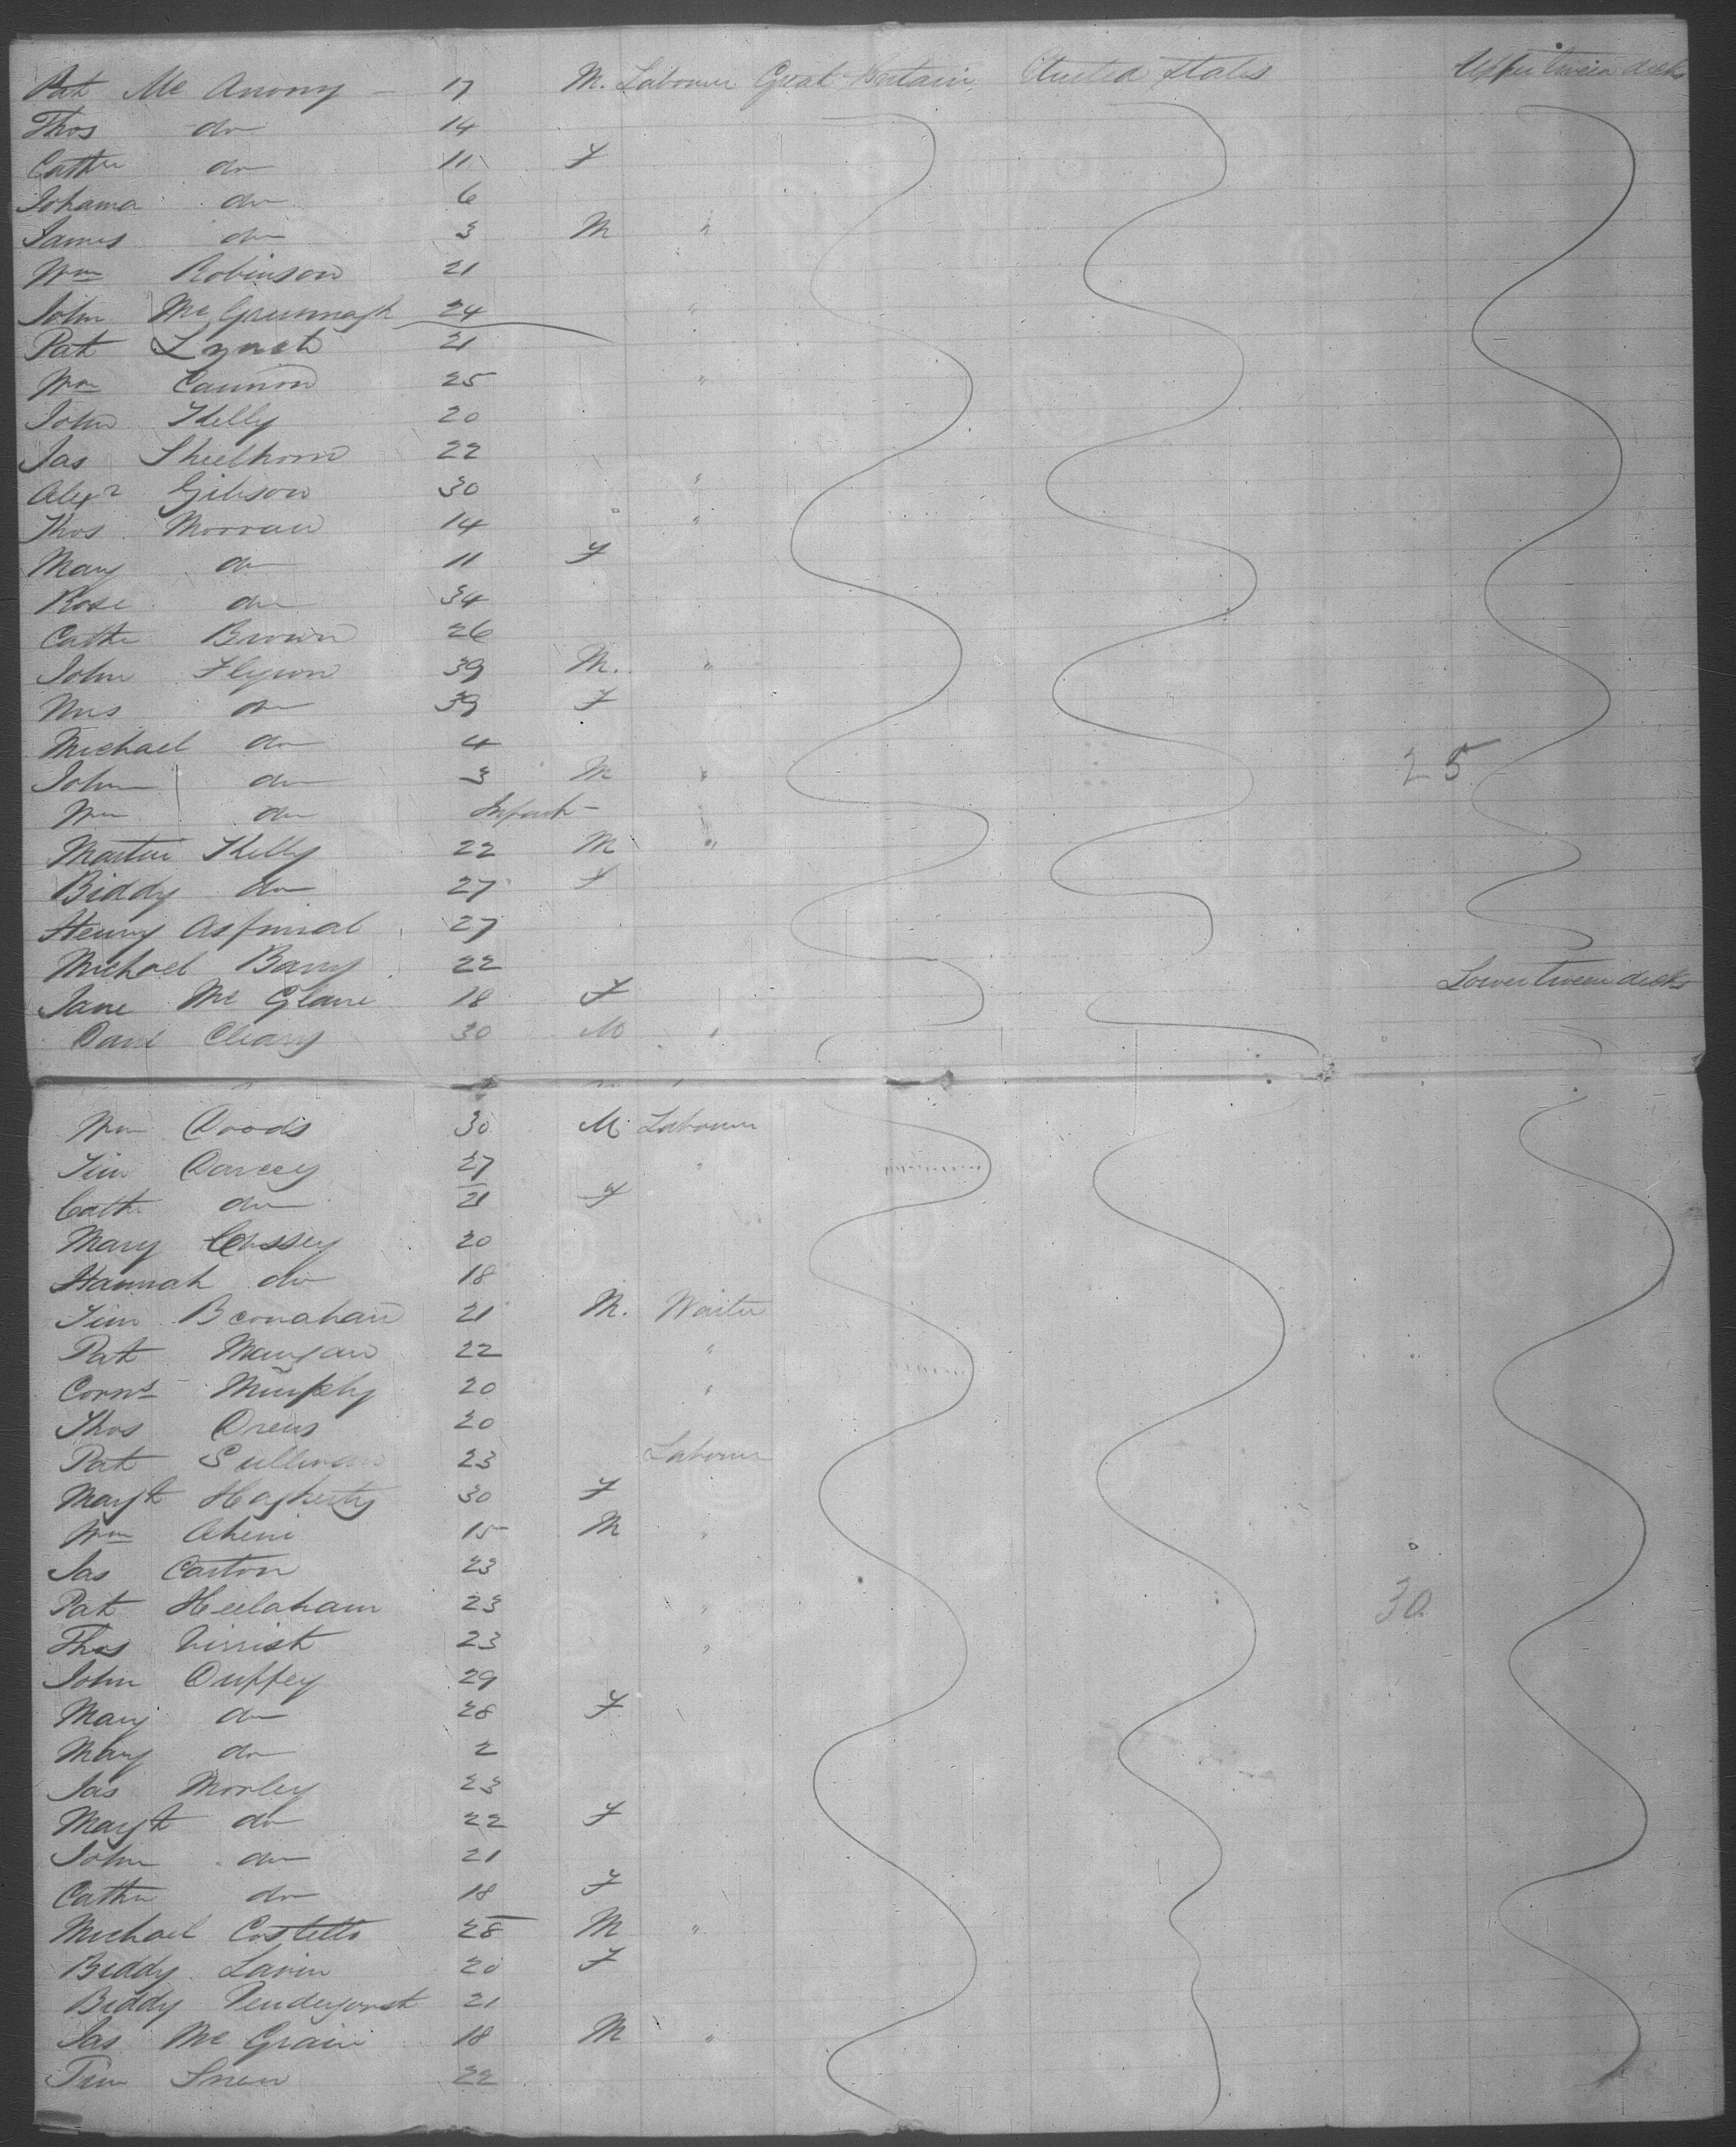 Pat Mc Anony - 17 M. Labourer Great Britain United States Upper tween decks
Thos do 14
Cathe do 11 F
Johama do 6
James do 3 M "
Wm Robinson 21
John Mc 24 "
Pat Lynch 21
Wm Cannon 25 "
John Kelly 20
Jas 22
Alexr Gibson 30 "
Thos Morran 14 "
Mary do 11 F
Rose do 34
Cathe Brown 26
John Flynn 39 M. "
Mrs do 39 F
Michael do 4
John do 3 M " 25
Wm do Infant -
Martin Kelly 22 M "
Biddy do 27 F
Henry Aspinal 27
Michael Barry 22
Jane Mc Glane 18 F Lower tween decks
Danl Cleary 30 M "
Wm Doods 30 M Labourer
Tim Darcey 27 "
Cathe do 21 F
Mary Cossey 20
Hannah do 18
Tim 21 M. Waiter
Pat Mangan 22 "
Corns Murphy 20 "
Thos 20
Pat Sullivan 23 Labourer
Margt Hagherty 30 F
Wm Ahern 15 M "
Jas Carton 23
Pat Heelaham 23 " 30
Thos 23 "
John Duffey 29
Mary do 28 F
Mary do 2
Jas Morley 23
Margt do 22 F
John do 21
Cathe do 18 F
Michael Costello 28 M "
Biddy Lavin 20 F
Biddy Pendergrast 21
Jas Mc Grain 18 M "
Tim 22